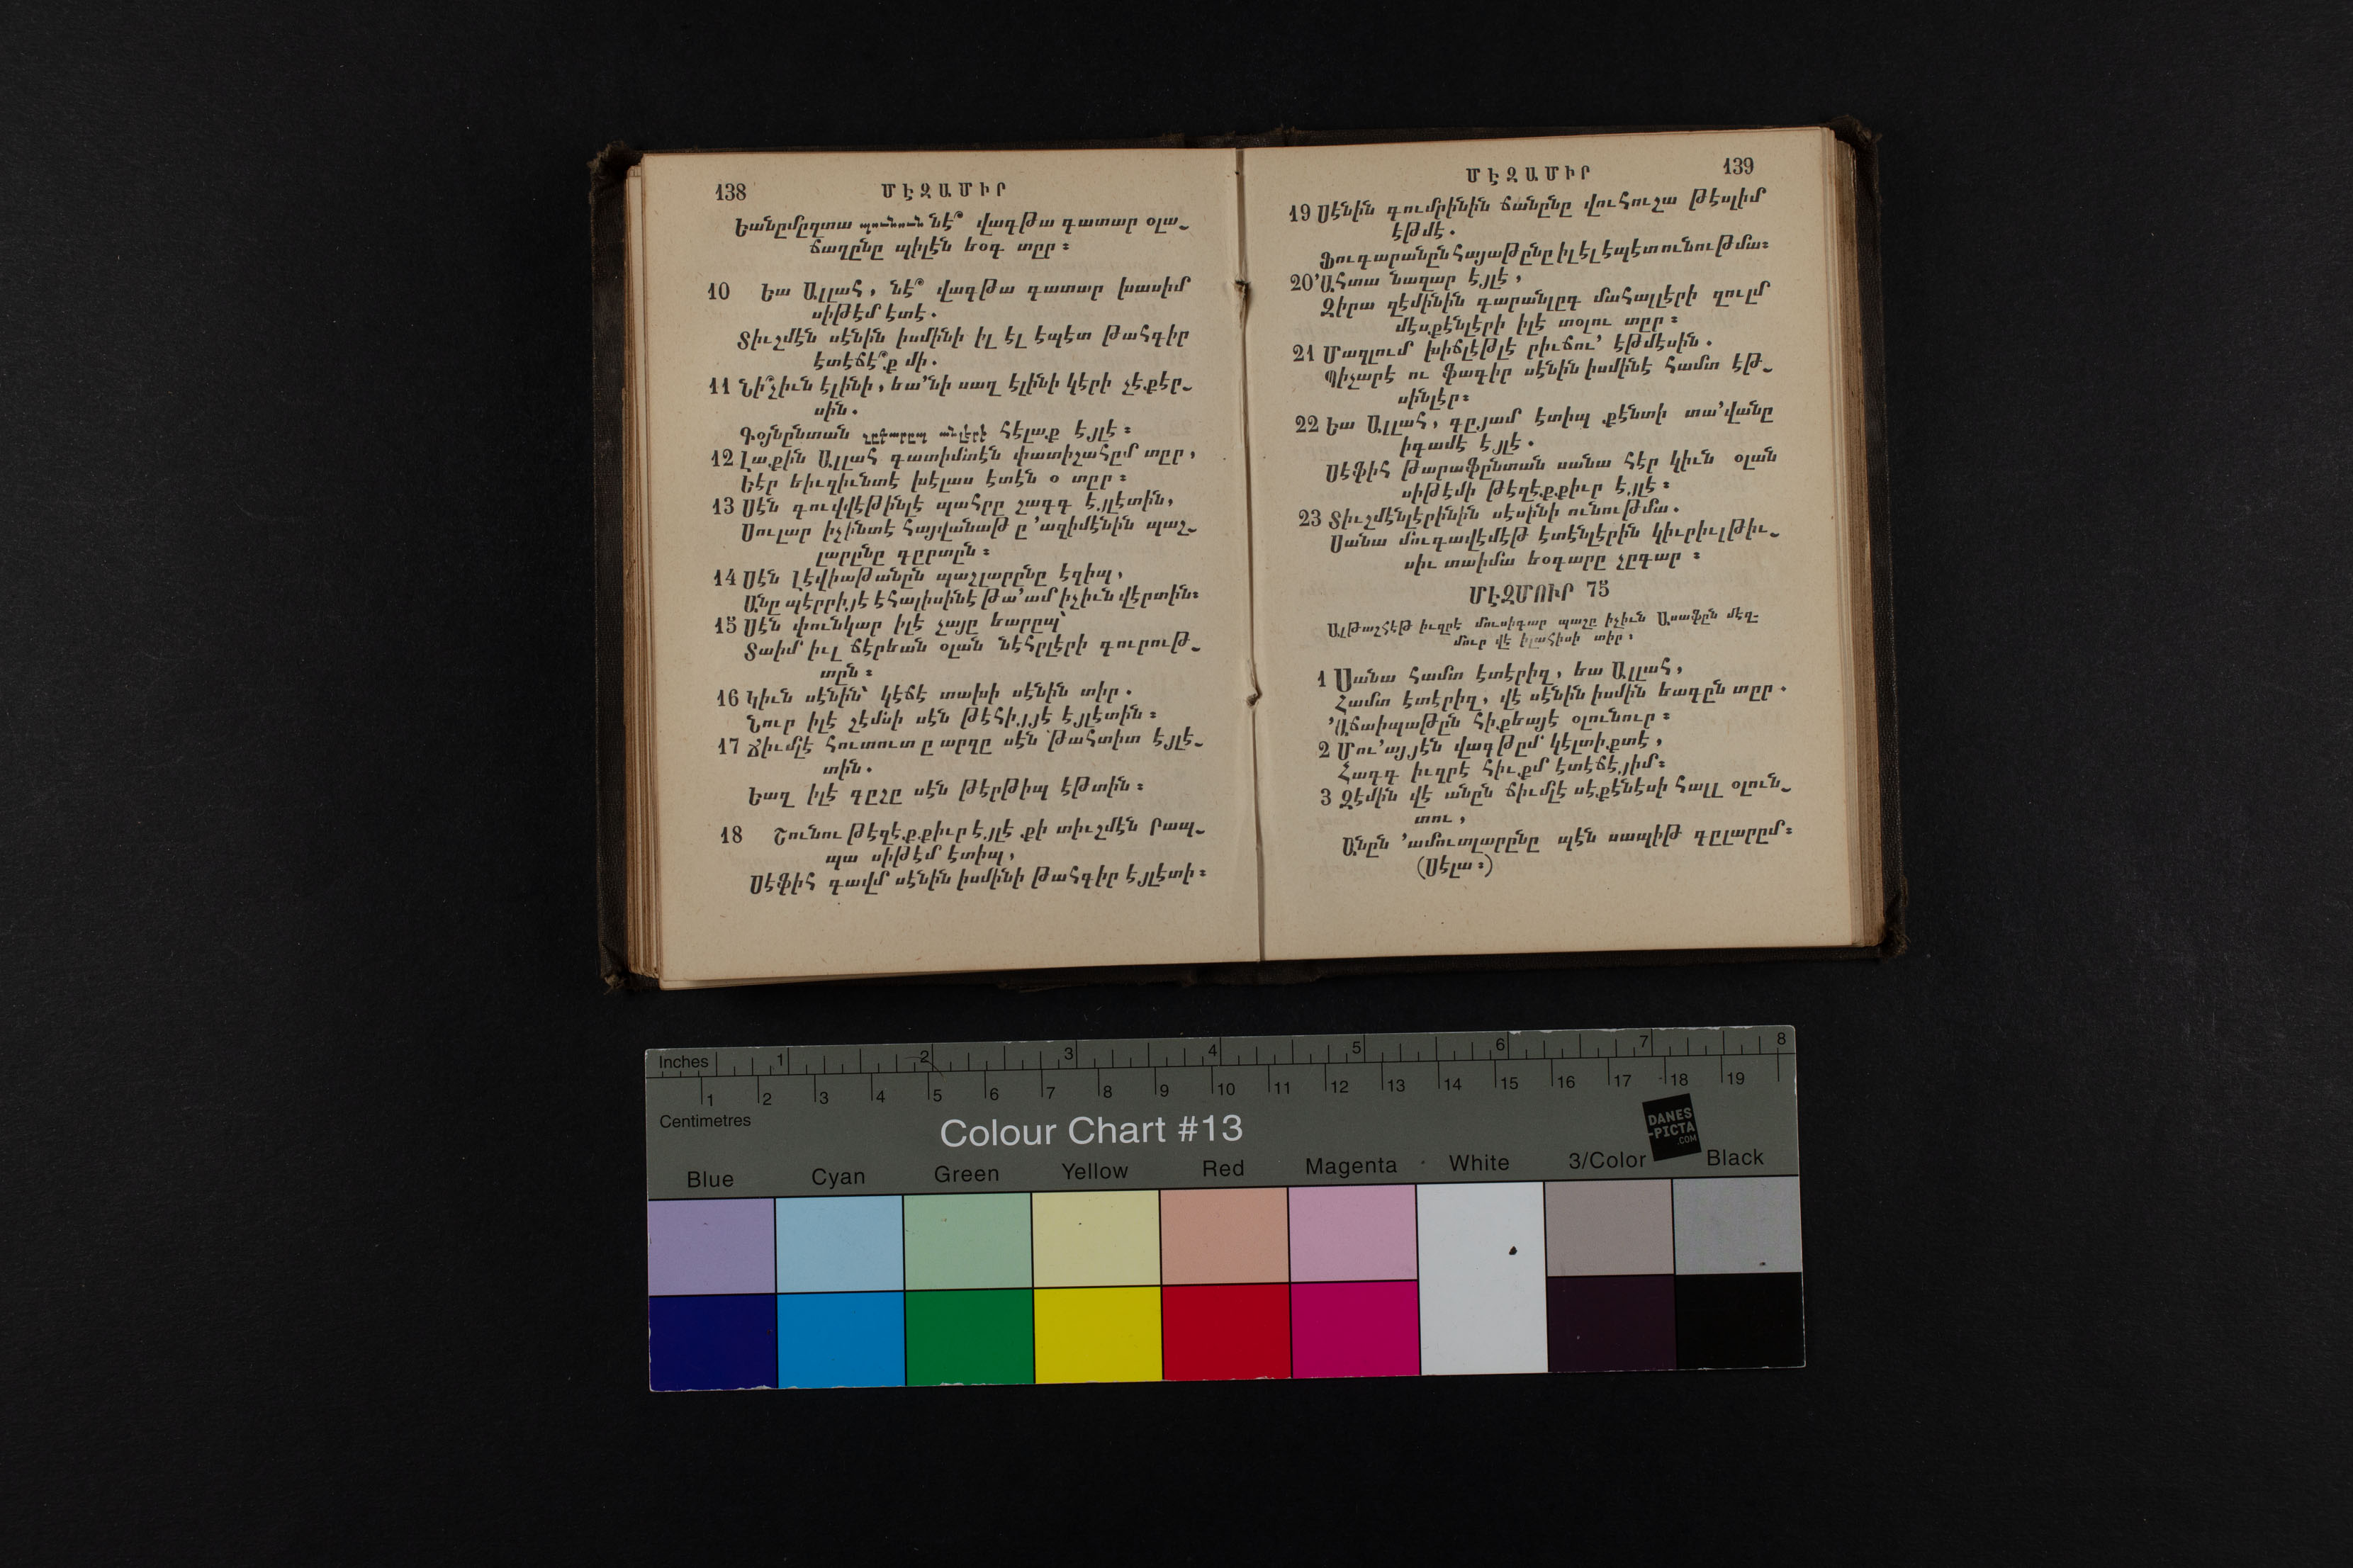 138 ՄԷԶԱՄԻՐ
Եանըմըզտա պունուն նէ՞ վագթա գատար օլա֊
ճաղընը պիլէն եօգ տըր ։
10 Եա Ալլահ, նէ՞ վագթա գատար խասիմ
սիթէմ էտէ.
Տիւշմէն սէնին իսմինի իլ էլ էպէտ թահգիր
էտէճէ՞ք մի.
11 Նի՞չիւն էլինի, եա՛նի սաղ էլինի կերի չէքէր֊
սին.
Գօյնընտան չըքարըպ անլերի հէլաք էյլէ ։
12 Լաքին Ալլահ գատիմտէն փատիշահըմ տըր,
Եէր եիւզիւնտէ խէլաս էտէն օ տըր ։
13 Սէն գուվվէթինլէ պահրը շագգ էյլէտին,
Սուլար իչինտէ հայվանաթ ը ՛ազիմէնին պաշ֊
լարընը գըրտըն ։
14 Սէն լէվիաթանըն պաշլարընը էզիպ,
Անը պէրրիյէ էհալիսինէ թա՛ամ իչիւն վէրտին։
15 Սէն փունկար իլէ չայը եարըպ՝
Տաիմ իւլ ճէրեան օլան նէհրլէրի գուրութ֊
տըն ։
16 Կիւն սէնին՝ կէճէ տախի սէնին տիր.
Նուր իլէ շէմսի սէն թէհիյյէ էյլէտին ։
17 Ճիւմլէ հուտուտ ը արզը սէն թահտիտ էյլէ֊
տին.
Եազ իլէ գըշը սէն թէրթիպ էթտին ։
18 Շունու թէզէքքիւր էյլէ քի տիւշմէն Րապ֊
պա սիթէմ էտիպ,
Սէֆիհ գավմ սէնին իսմինի թահգիր էյլէտի ։
ՄԷԶԱՄԻՐ 139
19 Սէնին գումրինին ճանընը վուհուշա թէսլիմ
էթմէ.
Ֆուգարանըն հայաթընը իլ էլ էպէտ ունութմա։
20 ՛Ահտա նազար էյլէ,
Զիրա զէմինին գարանլըգ մահալլէրի զուլմ
մէսքէնլէրի իլէ տօլու տըր ։
21 Մազլում խիճլէթլէ րիւճու՛ էթմէսին.
Պիչարէ ու ֆագիր սէնին իսմինէ համտ էթ֊
սինլէր։
22 Եա Ալլահ, գըյամ էտիպ քէնտի տա՛վանը
իգամէ էյլէ.
Սէֆիհ թարաֆընտան սանա հէր կիւն օլան
սիթէմի թէզէքքիւր էյլէ ։
23 Տիւշմէնլէրինին սէսինի ունութմա.
Սանա մուգավէմէթ էտէնլէրին կիւրիւլթիւ֊
սիւ տաիմա եօգարը չըգար ։
ՄԷԶՄՈՒՐ 75
Ալթաշհէթ իւզրէ մուսիգար պաշը իչիւն Ասաֆըն մէզ֊
մուր վէ իլահիսի տիր,
1 Սանա համտ էտէրիզ, եա Ալլահ,
Համտ էտէրիզ, վէ սէնին իսմին եագըն տըր.
՛Աճաիպաթըն հիքեայէ օլունուր ։
2 Մու՛այյէն վագթըմ կէլտիքտէ,
Հագգ իւզրէ հիւքմ էտէճէյիմ։
3 Զէմին վէ անըն ճիւմլէ սէքէնէսի հալլ օլուն֊
տու,
Անըն ՛ամուտլարընը պէն սապիթ գըլարըմ։
(Սէլա ։)
Inches 1 2 3 4 5 6 7 8
1 2 3 4 5 6 7 8 9 10 11 12 13 14 15 16 17 18 19
Centimetres
Colour Chart #13
DANES
-PICTA
.COM
Blue Cyan Green Yellow Red Magenta White 3/Color Black